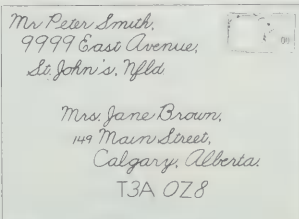 Mr Peter Smith,
9999 East Avenue,
St. John's, Nfld
Mrs. Jane Brown,
149 Main Street,
Calgary, Alberta.
T3A 0Z8